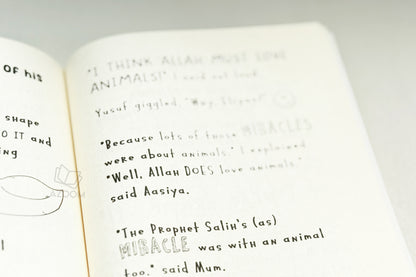 OF his
shape
O IT and
ng
"I THINK ALLAH MUST LOVE
ANIMALS!" I said out loud.
Yusuf giggled. "Why, Iliyas?"
"Because lots of those MIRACLES
were about animals." I explained.
"Well, Allah DOES love animals."
said Aasiya.
"The Prophet Salih's (as)
MIRACLE was with an animal
too." said Mum.